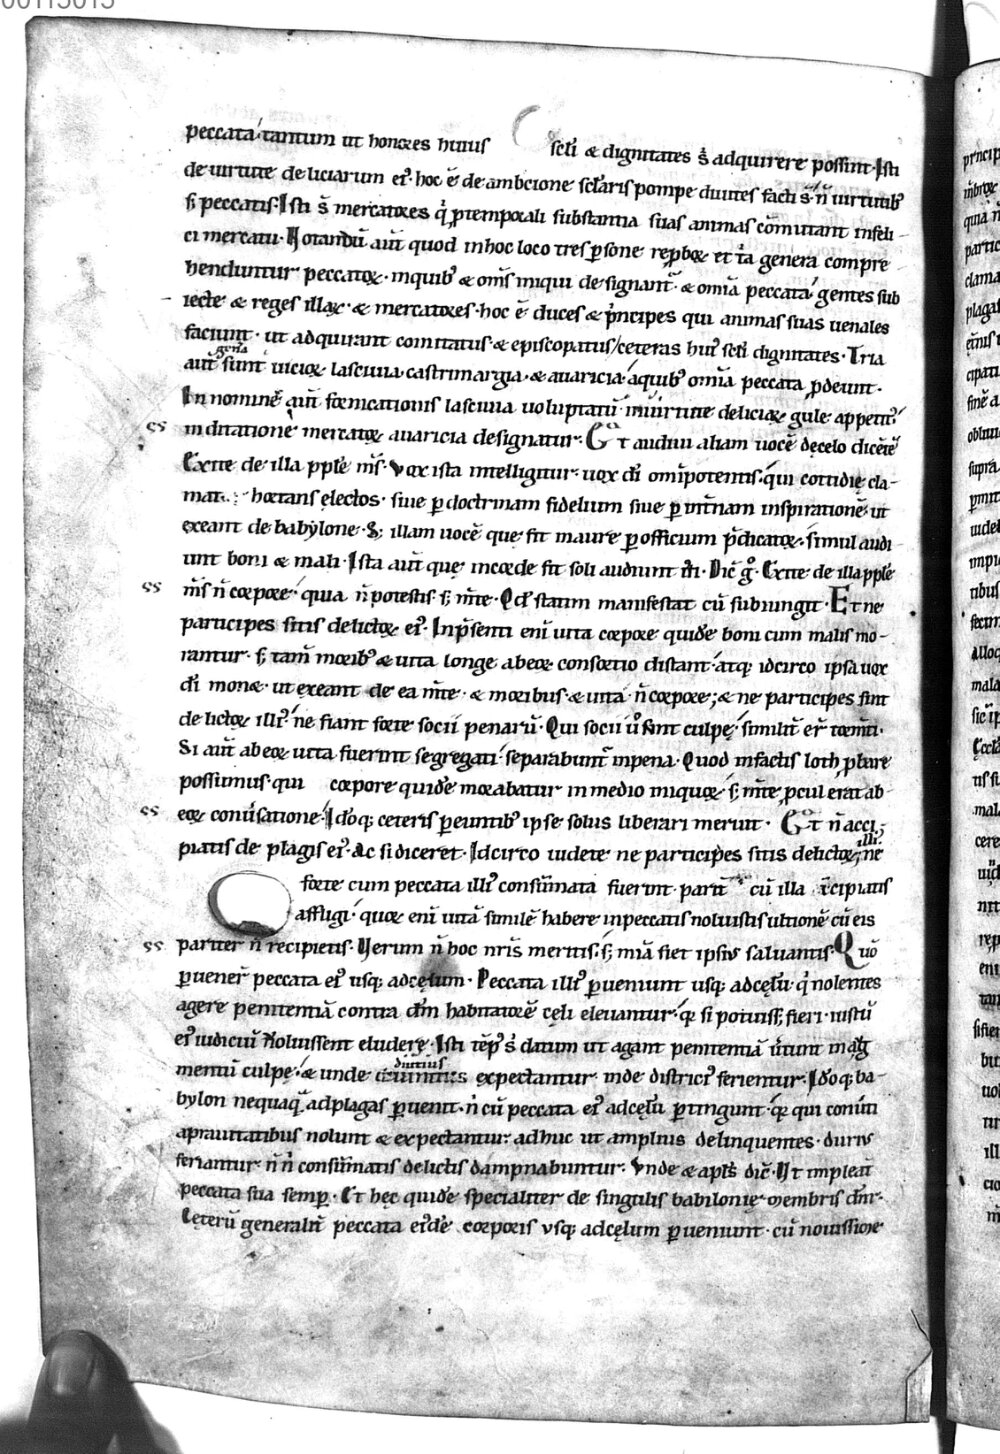 00115015
peccata. tantum ut honores huius scľi & dignitates s̄ adquirere possint. Isti
de uirtute deliciarum ei᷒. hoc ē de ambicione sclaris pompe diuites facti s̄. n̄ uirtutibꝰ
s; peccatis. Isti s̄ mercatores q̇ ꝓtemporali substantia suas animas cōmutant infeli-
ci mercatu. Notandū aut̄ quod inhoc loco tres ꝑsone reproboꝝ et tͣa genera compre
henduntur peccatoꝝ. inquibꝰ & om̄s iniqui designant᷒. & omīa peccata. gentes sub
iecte & reges illaꝝ. & mercatores. hoc ē duces & pͥncipes qui animas suas uenales
faciunt. ut adquirant comitatus. & episcopatus / ceteras hui᷒ scľi dignitates. Tria
genͣa
aut̄ sunt uicioꝝ lasciuia. castrimargia. & auaricia. aquibꝰ omīa peccata ꝓdeunt.
In nomine aut̄ fornicationis lasciuia uoluptatū. inuirtute deliciaꝝ gule appetit᷒.
in ditatione mercatoꝝ auaricia designatur. Et audiui aliam uocē de celo dicētē
Exite de illa ppl̄e m̄s. Vox ista intelligitur. uox dī omīpotentis. qui cottidię cla-
mat. hortans electos. siue ꝑ doctrinam fidelium siue ꝑ int̄nam inspirationē ut
exeant de babylone. S; illam uocē que fit maiore ꝑ officium p̄dicatoꝝ. simul audi
unt boni & mali. Ista aut̄ quę incorde fit soli audiunt iti. Dic̄ g̊. Exite de illa ppl̄e
m̄s n̄ corpore. quia n̄ potestis. s; m̄te. Qd̓ statim manifestat cū subiungit. Et ne
participes sitis delictoꝝ ei᷒. Inp̄senti eni uita corpore quidē boni cum malis mo-
rantur. s; tam̄ moribꝰ & uita longe ab eoꝝ consortio distant. atq; idcirco ipsa uox
dī monet. ut exeant de ea m̄te. & moribus. & uita n̄ corpore; & ne participes sint
delictoꝝ illi᷒. ne fiant forte socii penarū. Qui socii u̓o sunt culpę. simili᷒t er̄t torm̄ti.
Si aut̄ ab eoꝝ uita fuerint segregati. separabunt᷒ inpena. Quod infactis loth ꝓbare
possumus. qui corpore quidē morabatur in medio iniquoꝝ. s; m̄te ꝓcul erat ab
eoꝝ conu̓satione. Idoq; ceteris ꝑeuntibꝰ ipse solus liberari meruit. Et n̄ acci
illi᷒
piatis de plagis ei᷒. Ac si diceret. Idcirco iubete ne participes sitis delictoꝝ; ne
forte cum peccata illi᷒ consūmata fuerint. parit̄ cū illa recipiatis
affligi. quoꝝ eni uitā similē habere inpeccatis noluistis ultionē cū eis
pariter n̄ recipietis. Verum n̄ hoc nr̄is meritis. s; mīa fiet ipsius saluantis. Quō
ꝑuener̄ peccata ei᷒ usq; adcęlum. Peccata illi᷒ ꝑueniunt usq; adcęlū. q̇ nolentes
agere penitentiā contra dn̄m habitatorē cęli eleuantur. q̄ si potuiss; fieri. iustū
ei᷒ iudiciū noluissent eludere. Isti tēp᷒ s̄ datum ut agant penitentiā u̓tunt in aug
diutius
mentū culpę. & unde diutius expectantur inde district᷒ ferientur. Idoq; ba-
bylon nequaq̄ adplagas ꝑuenit. n̄ cū peccata ei᷒ adcęlū ꝑtingunt. q̄ qui conu̓ti
aprauitatibus nolunt & expectantur adhuc ut amplius delinquentes. durius
feriantur n̄ n̄ consūmatis delictis dampnabuntur. Vnde & apl̄s dic̄. Vt impleāt
peccata sua semꝑ. Et hęc quidē specialiter de singulis babilonię membris dn̄r.
Ceterū generalit̄ peccata ei᷒dē corporis vsq; adcęlum ꝑueniunt. cū nouissiore